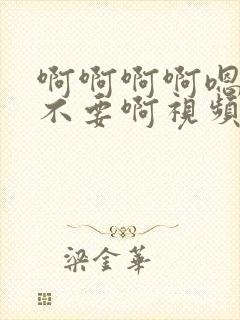 啊啊啊啊嗯
不要啊視頻
梁金華